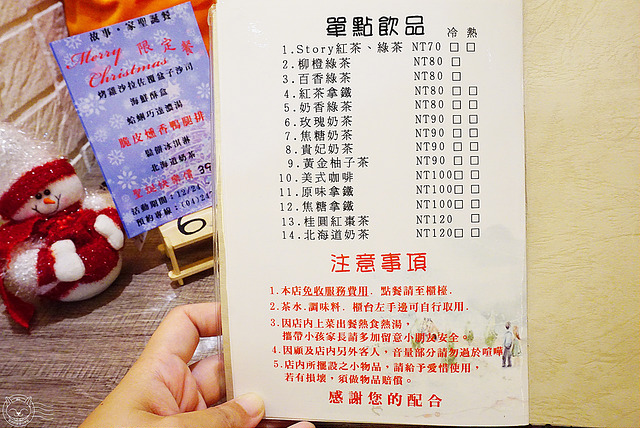 故事·家聖誕餐
Merry
Christmas
限定餐
烤雞沙拉佐覆盆子沙司
海鮮酥盒
蛤蜊巧達濃湯
脆皮燻香鴨腿排
北海道奶茶
聖誕快樂價39
活動期間：12/24
預約專線：(04)24
6
單點飲品 冷 熱
1.Story紅茶、綠茶 NT70 □ □
2.柳橙綠茶 NT80 □
3.百香綠茶 NT80 □
4.紅茶拿鐵 NT80 □ □
5.奶香綠茶 NT80 □ □
6.玫瑰奶茶 NT90 □ □
7.焦糖奶茶 NT90 □ □
8.貴妃奶茶 NT90 □ □
9.黃金柚子茶 NT90 □ □
10.美式咖啡 NT100□ □
11.原味拿鐵 NT100□ □
12.焦糖拿鐵 NT100□ □
13.桂圓紅棗茶 NT120 □
14.北海道奶茶 NT120□ □
注意事項
1.本店免收服務費用．點餐請至櫃檯．
2.茶水.調味料．櫃台左手邊可自行取用．
3.因店內上菜出餐熱食熱湯，
攜帶小孩家長請多加留意小朋友安全。
4.因顧及店內另外客人，音量部分請勿過於喧嘩
5.店內所擺設之小物品，請給予愛惜使用，
若有損壞，須做物品賠償。
感謝您的配合